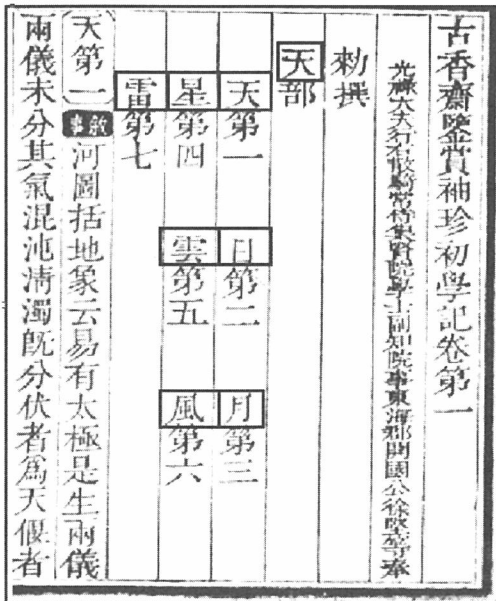 古香齋鑒賞袖珍初學記卷第一
光祿大夫行右散騎常侍集賢院學士副知院事東海郡開國公徐堅等奉
勅撰
天部
天第一 日第二 月第三
星第四 雲第五 風第六
雷第七
天第一 敘事 河圖括地象云易有太極是生兩儀
兩儀未分其氣混沌清濁既分伏者為天偃者